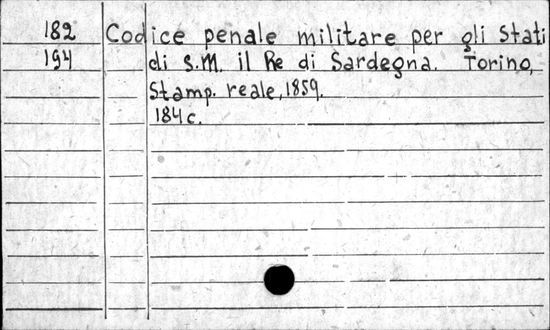 182 Codice penale militare per gli Stati
194 di S.M. il Re di Sardegna. Torino,
Stamp. reale, 1859.
184 c.